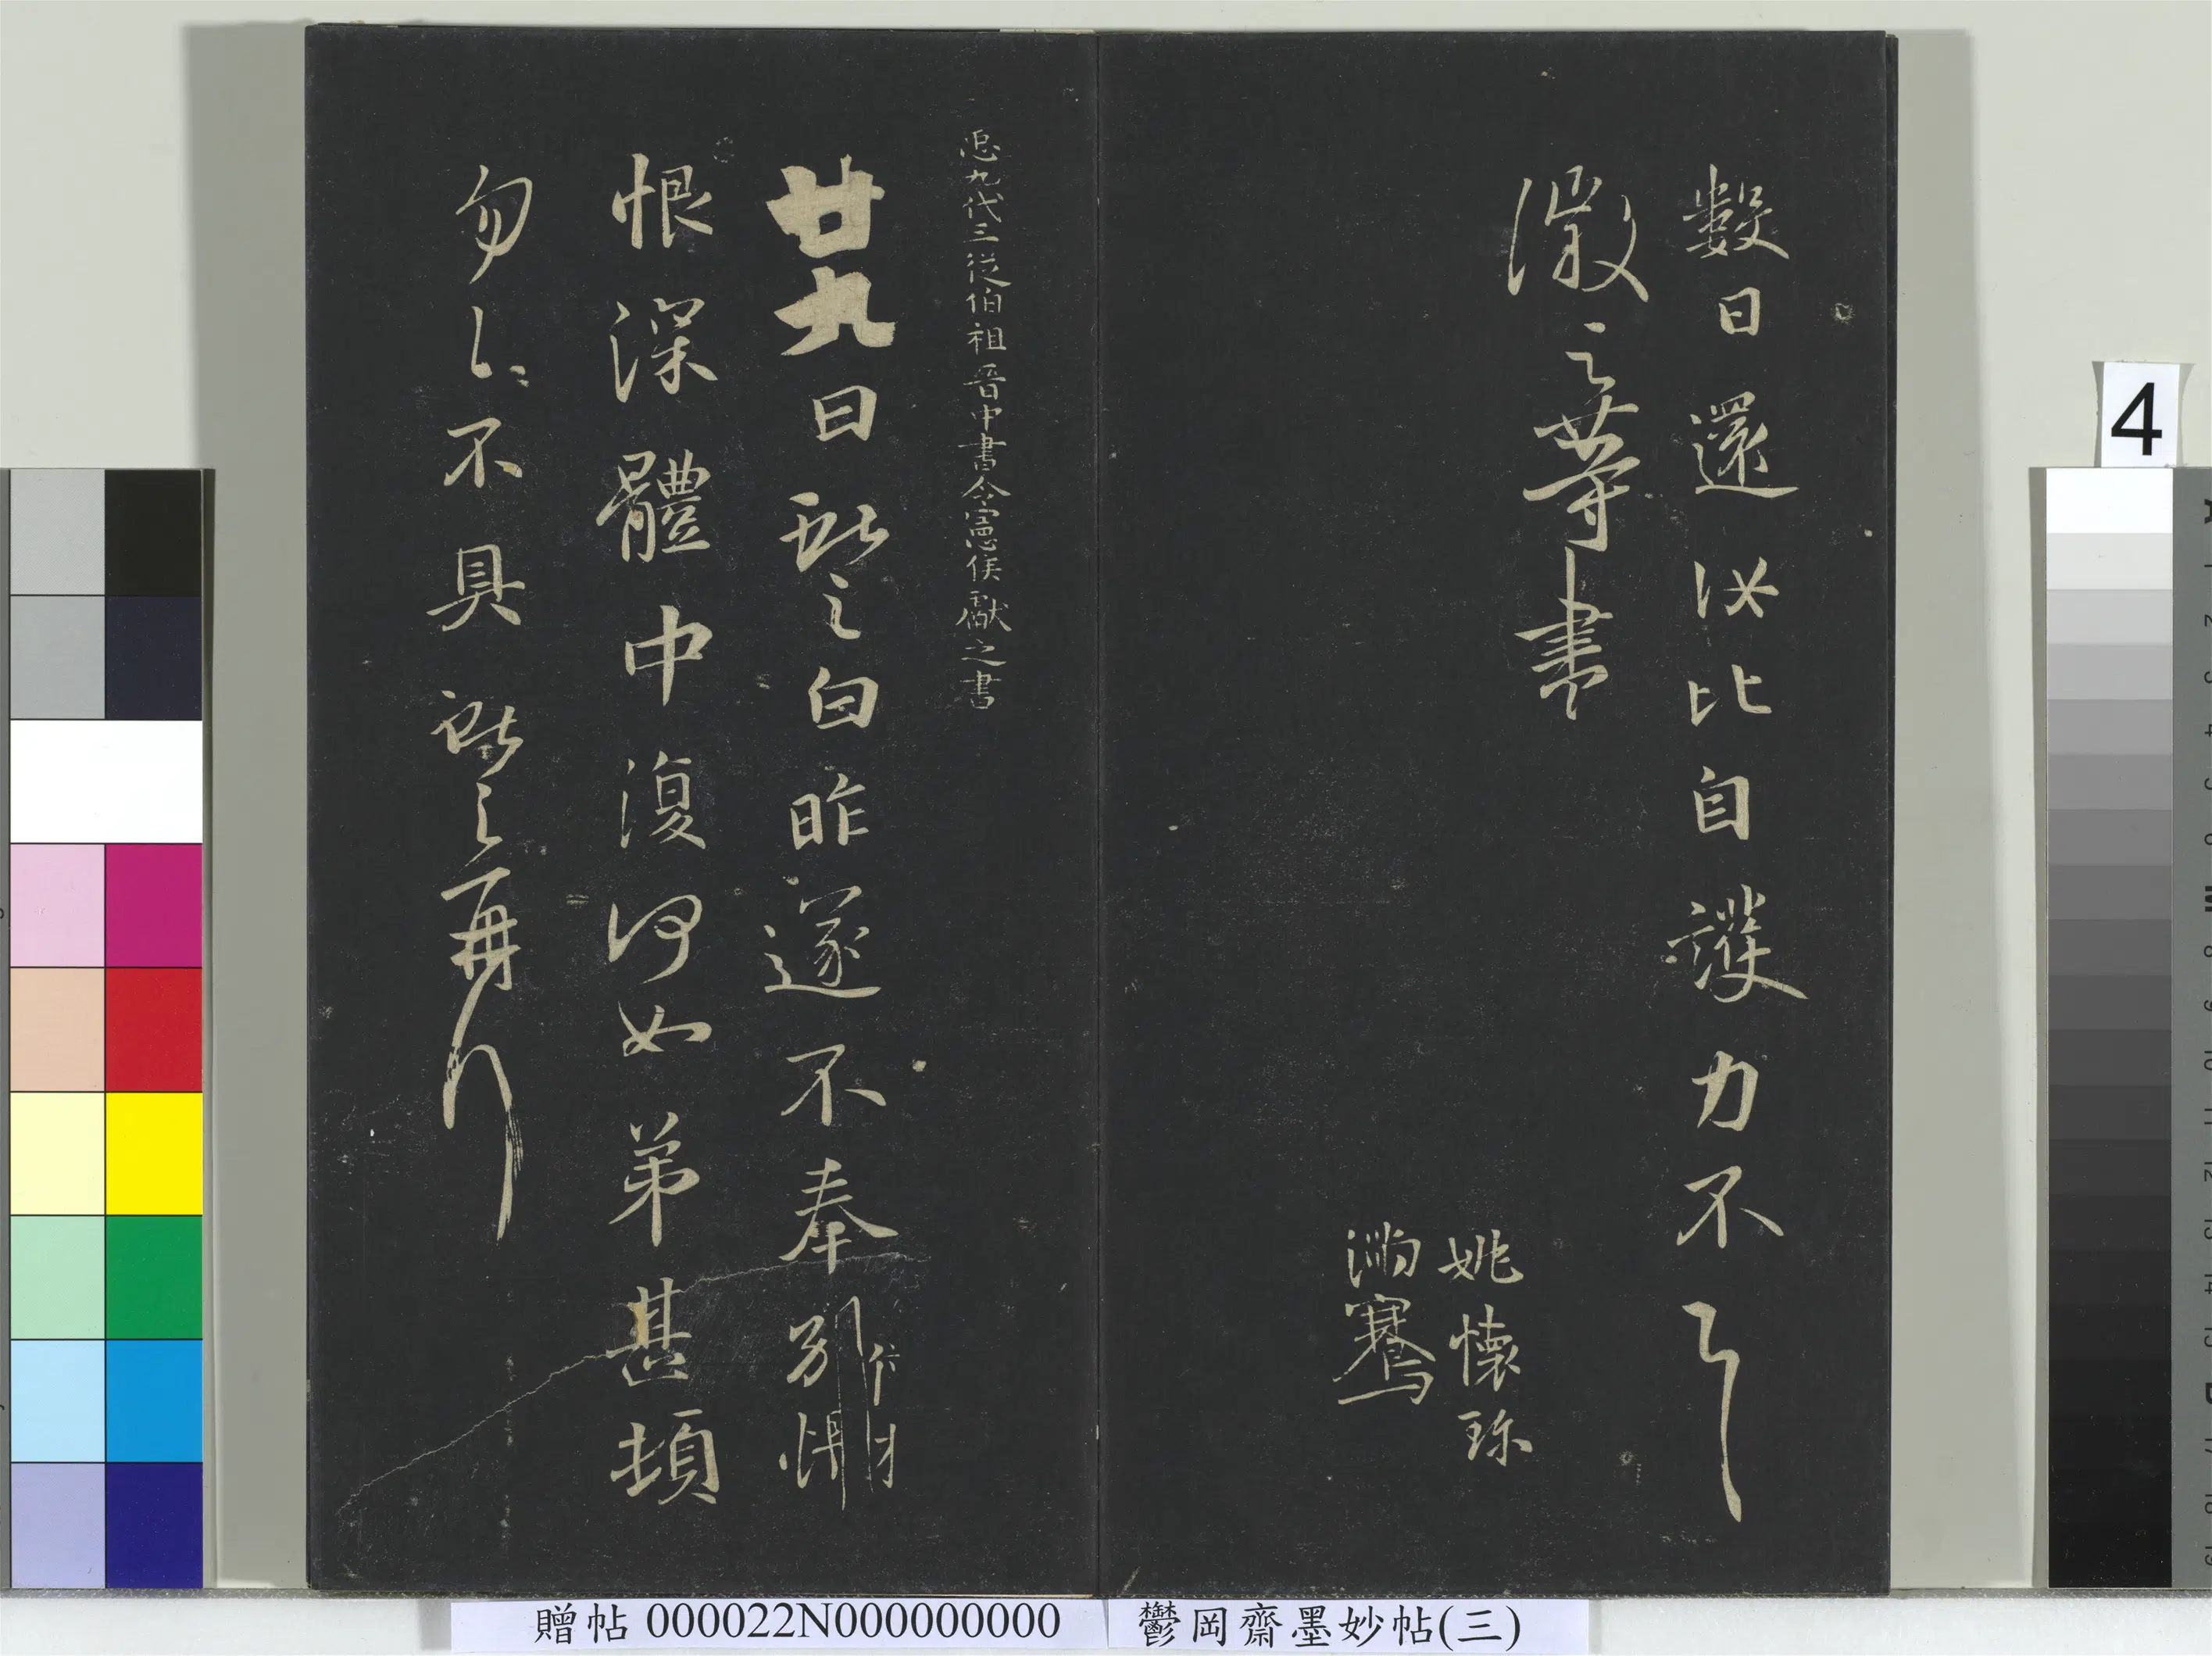 數日還汝比自護力不具
徽之等書
姚懷珍
滿騫
臣九代三從伯祖晉中書令憲侯獻之書
廿九日獻之白昨遂不奉別悵
恨深體中復何如弟甚頓
匆匆不具獻之再拜
贈帖 000022N000000000
鬱岡齋墨妙帖(三)
4